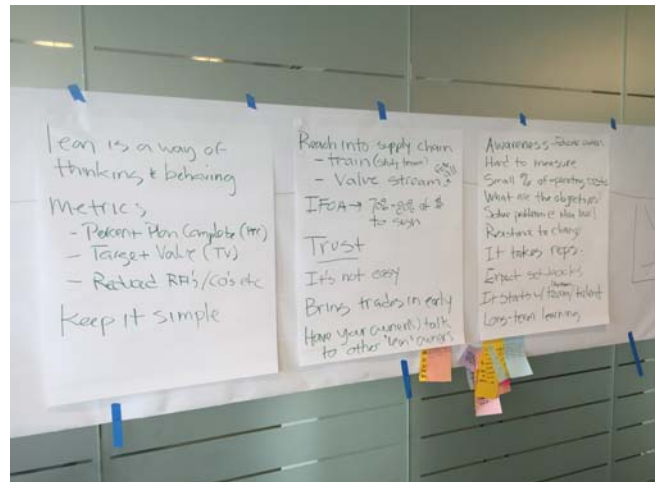 lean is a way of
thinking & behaving
Metrics
- Percent Plan Complete (PPC)
- Target Value (TV)
- Reduced RFI's/CO's etc
Keep it simple
Reach into supply chain
- train (study team)
- Value stream
IFOA → 70%-80% of $
to sign
Trust
It's not easy
Bring trades in early
Have your owner(s) talk
to other "lean" owners
Awareness
Hard to measure
Small % of
What are the objectives
Solve problem @
Resistance to change
It takes reps.
Expect setbacks
It starts w/ team/talent
Long-term learning